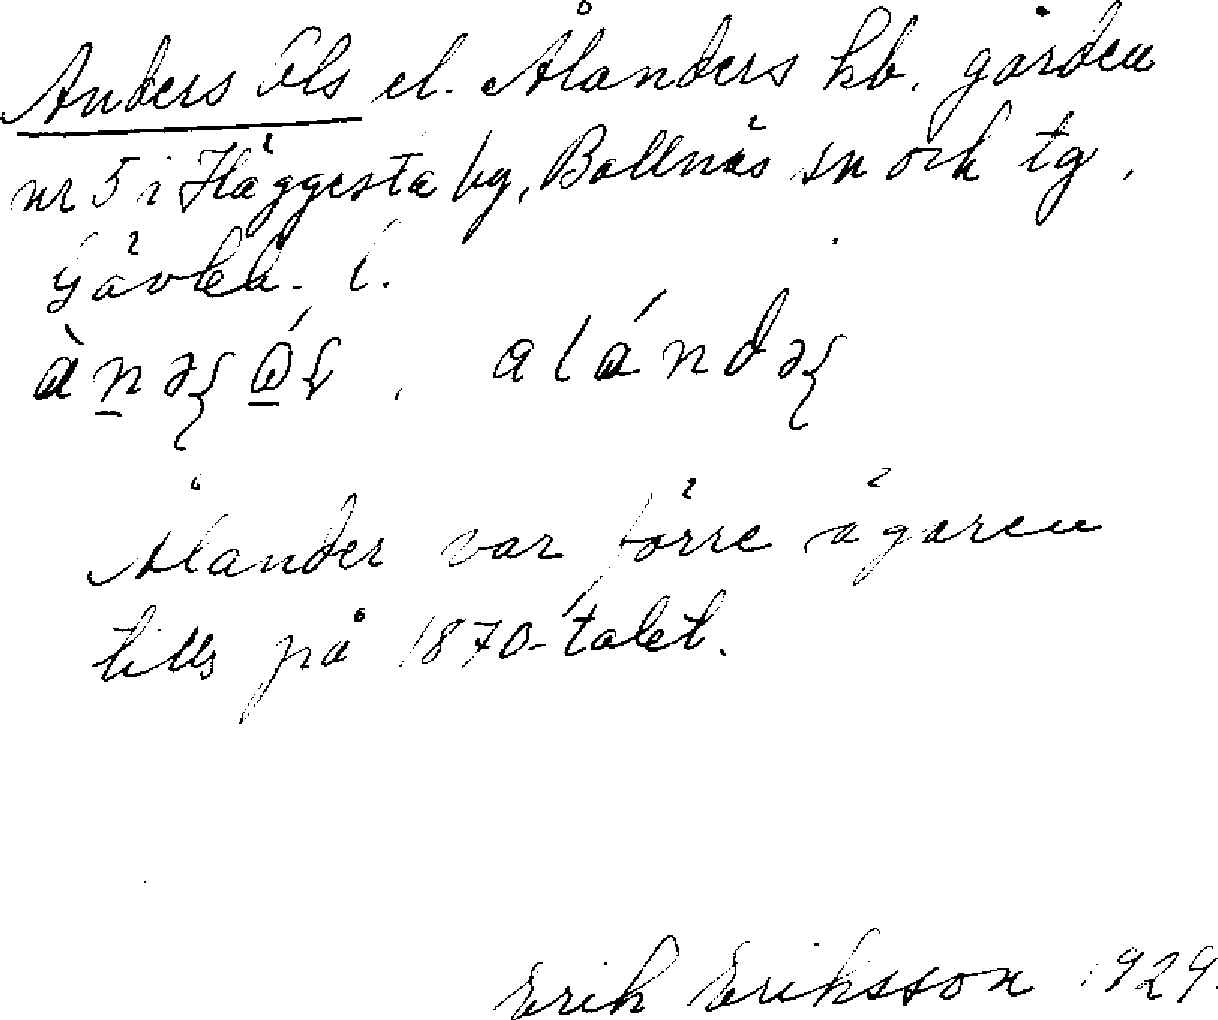 Anders Ols el. Ålanders hb. gården
nr 5 i Häggesta by, Bollnäs sn och tg,
Gävleb. l.
alándəꞩ
Ålander var förre ägaren
tills på 1870-talet.
Erik Eriksson 1929.